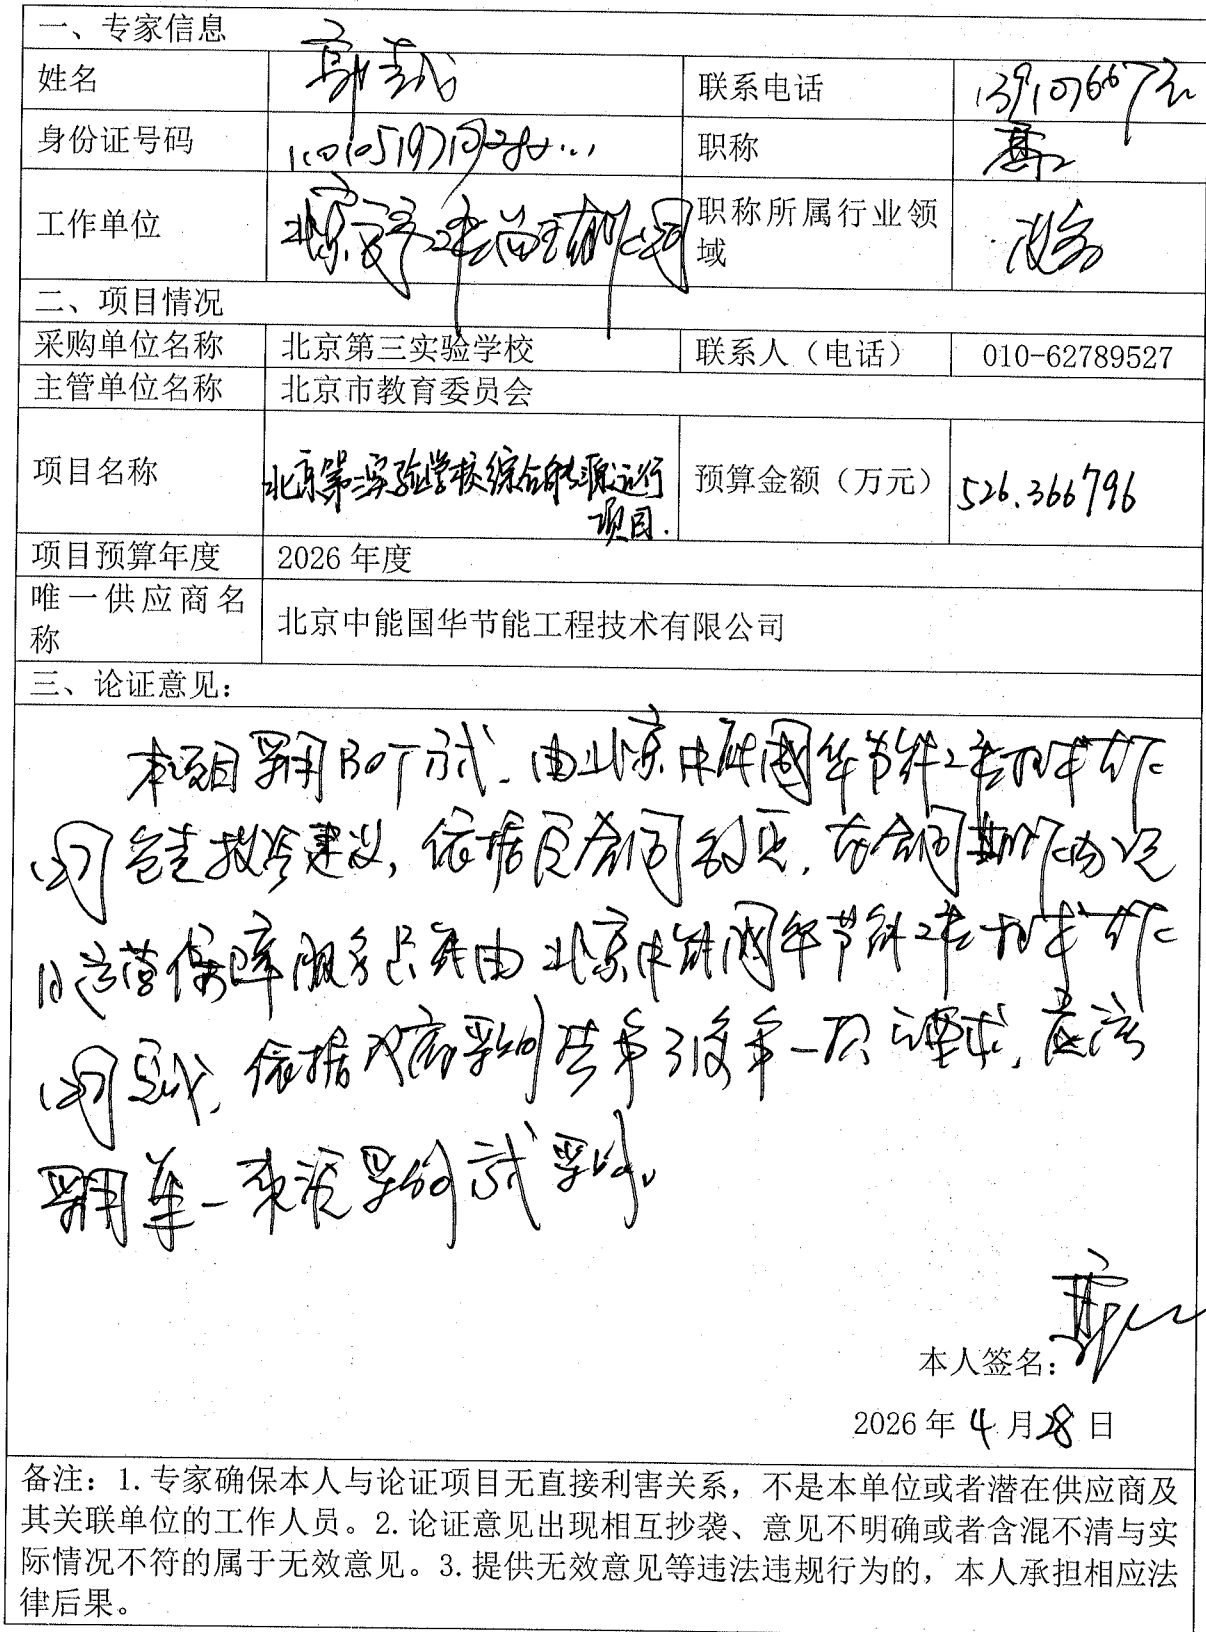 一、专家信息
姓名 联系电话
身份证号码 职称 高工
工作单位 职称所属行业领域
二、项目情况
采购单位名称 北京第三实验学校 联系人（电话） 010-62789527
主管单位名称 北京市教育委员会
项目名称 北京第三实验学校综合能源运行项目. 预算金额（万元） 526.366796
项目预算年度 2026年度
唯一供应商名称 北京中能国华节能工程技术有限公司
三、论证意见：
本项目采用BOT方式、由北京中能国华节能工程技术有限
公司负责投资建设，依据原合同约定，在合同期限内
运营保障服务只能由北京中能国华节能工程技术有限
公司完成，依据政府采购法第31条第一项之要求，应该
采用单一来源采购方式采购。
本人签名：
2026年4月28日
备注：1.专家确保本人与论证项目无直接利害关系，不是本单位或者潜在供应商及
其关联单位的工作人员。2.论证意见出现相互抄袭、意见不明确或者含混不清与实
际情况不符的属于无效意见。3.提供无效意见等违法违规行为的，本人承担相应法
律后果。